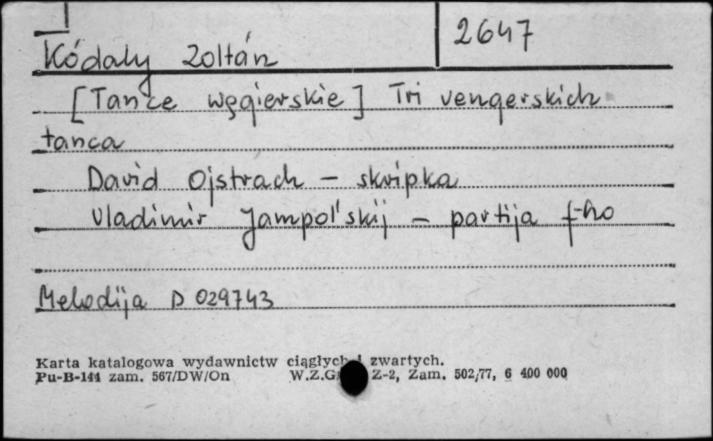 2647
Kódaly Zoltán
[Tańce węgierskie] Tri vengerskich
tanca
David Ojstrach - skripka
Vladimir Jampol'skij - partija f-no
Melodija D 029743
Karta katalogowa wydawnictw ciągłych i zwartych.
Pu-B-144 zam. 567/DW/On W.Z.G. Z-2, Zam. 502/77, 6 400 000